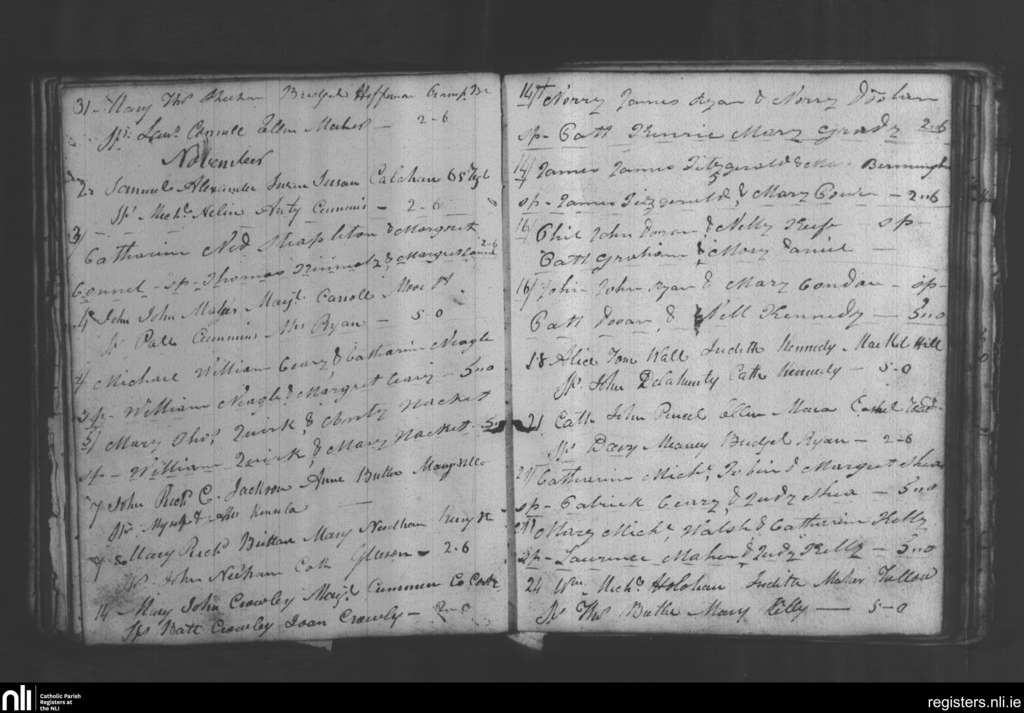 31 - Mary Thos Sheehan Bridget Heffernan
Sps. Lawe. Carroll Ellen Maher - 2-6
November
2 - Samuel Alexander Susan Calahan 65
Sps Michl. Anty Cummins - 2-6
3/ Catharin Ned Stapleton & Margret
Connel - Sp - Thomas & Margret 2-6
4 John John Maher Margt. Carroll Moor St.
Sps Patt Cummins Mrs Ryan - 5-0
4/ Michael William Geary & Catharin Neagle
sp - William Neagle & Margret Geary - 5no
5/ Mary Thos. Quirk, & Anty Hacket
sp - William Quirk, & Mary Hacket - 5
7 John Richd. C. Jackson Anne Butler
Sps. Myself & Mrs Kinsela
7 Mary Richd Brittan Mary Needham King St
Sps. John Needham Cath Gleeson - 2-6
14 - Mary John Crowley Margt Cummin Co Cork
Sps Batt Crowley Joan Crowley - 2-0
14/ Norry James Ryan & Norry
sp - Patt Mary Grady 2-6
14/ James James Fitzgerald & Mary Bermingham
sp - James Fitzgerald, & Mary Power - 2-6
16/ Phil John Doran & Nelly Keefe sp -
Patt Graham & Mary Daniel -
16/ John John Ryan & Mary Condon - sp -
Patt Doran, & Nell Kennedy - 5no
18 Alice Tom Wall Judith Kennedy Market Hill
Sps. John Delahunty Cathe Kennedy - 5-0
21 Cath John Purcel Ellen Mara Cashel Road
Sps Davy Meaney Bridget Ryan - 2-6
21/ Catharin Michl. Tobin & Margret Shea
sp - Patrick Geary & Judy Shea - 5no
Mary Michl. Walsh & Catharin Kelly
sp - Laurence Maher & Judy Kelly - 5no
24 Wm. Michl. Holohan Judith Maher
Sps Thos Butler Mary Kelly - 5-0
nli
Catholic Parish
Registers at
the NLI
registers.nli.ie